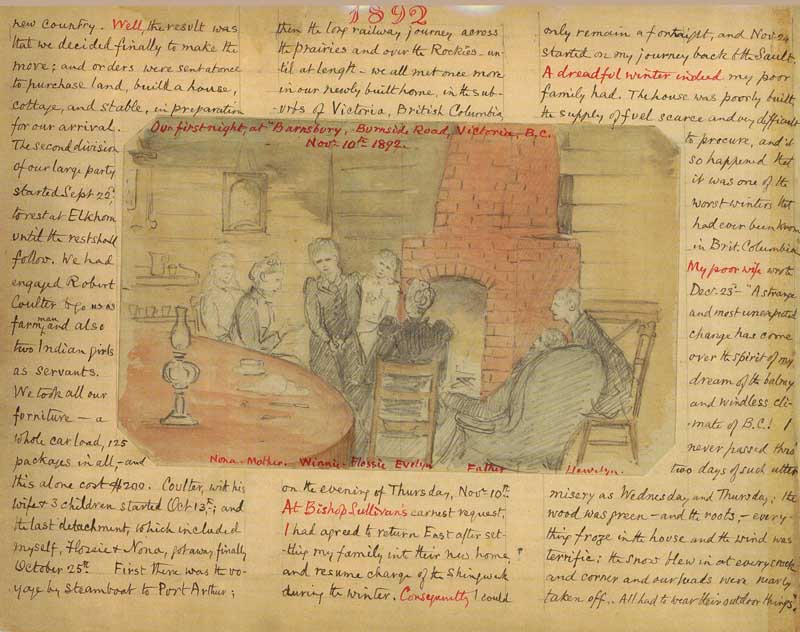 1892
new country. Well, the result was
that we decided finally to make the
move; and orders were sent at once
to purchase land, build a house,
cottage, and stable, in preparation
for our arrival.
The second division
of our large party
started Sept 22d
to rest at Elkhorn
until the rest shall
follow. We had
engaged Robert
Coulter to go as
farm man and also
two Indian girls
as servants.
We took all our
furniture – a
whole car load, 125
packages in all, – and
this alone cost $200. Coulter, with his
wife & 3 children started Oct 13th; and
the last detachment, which included
myself, Flossie & Nona, got away finally
October 25th First there was the vo-
yage by steamboat to Port Arthur;
then the long railway journey across
the prairies and over the Rockies – un-
til at length – we all met once more
in our newly built home, in the sub-
urbs of Victoria, British Columbia
Our first night, at "Barnsbury, Burnside Road, Victoria, B.C.
Nov. 10th 1892.
Nona. Mother. Winnie. Flossie Evelyn Father Llewelyn.
on the evening of Thursday, Nov. 10th
At Bishop Sullivan's earnest request,
I had agreed to return East after set-
tling my family in their new home,
and resume charge of the Shingwauk
during the winter. Consequently I could
only remain a fortnight, and Nov. 24
started on my journey back to the Sault.
A dreadful winter indeed my poor
family had. The house was poorly built
the supply of fuel scarce and very difficult
to procure, and it
so happened that
it was one of the
worst winters that
had ever been known
in Brit. Columbia
My poor wife wrote
Decr 23d – "A strange
and most unexpected
change has come
over the spirit of my
dream of the balmy
and windless cli-
mate of B.C.! I
never passed thro'
two days of such utter
misery as Wednesday and Thursday; the
wood was green – and the roots, – every-
thing froze in the house and the wind was
terrific; the snow blew in at every crack
and corner and our heads were nearly
taken off. All had to wear their outdoor things"